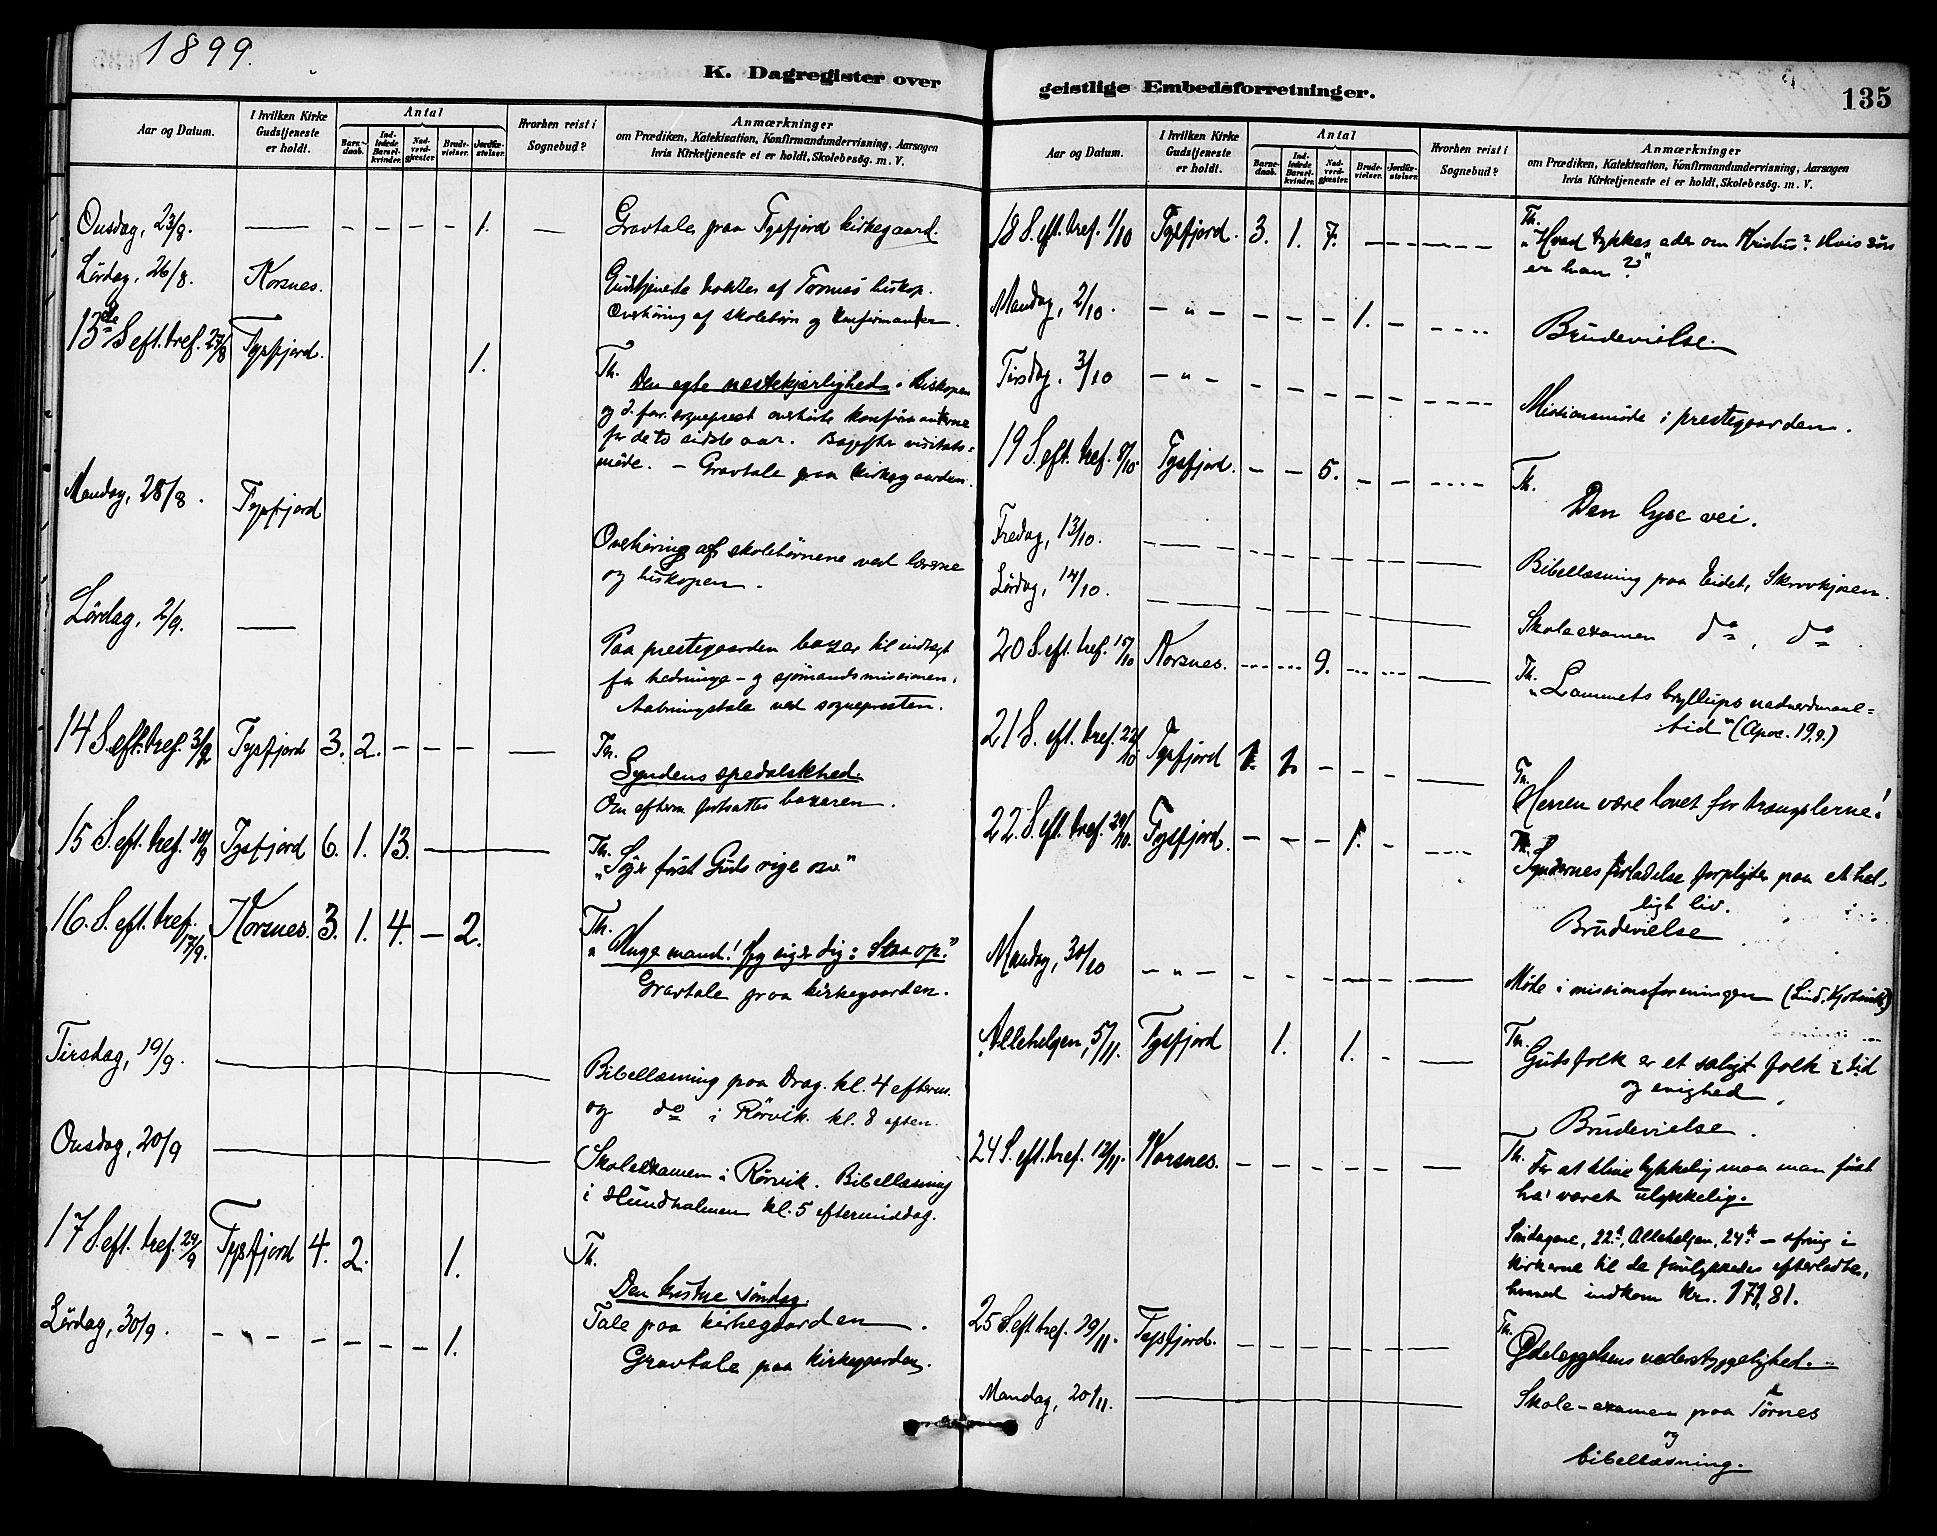 1899.
K. Dagregister over
Aar og Datum.
I hvilken Kirke Gudstjeneste er holdt.
Antal
Barnedaab.
Indledede Barselkvinder.
Nadverdgjester.
Brudevielser.
Jordfæstelser.
Hvorhen reist i Sognebud?
Anmærkninger
om Prædiken, Katekisation, Konfirmandundervisning, Aarsagen
hvis Kirketjeneste ei er holdt, Skolebesög. m. V.
Onsdag, 23/8. — – – – – 1. — Gravtale paa Tysfjord kirkegaard.
Lördag, 26/8. Korsnes. Gudstjeneste holdtes af Tromsø biskop.
Overhöring af skolebörn og konfirmander.
13de S. eft. tref. 27/8 Tysfjord. 1. Th.
Den egte næstekjærlighed. Biskopen
og d. for. sogneprest overhörte konfirmanterne
for de to sidste aar. Bagefter visitats-
möde. – Gravtale paa kirkegaarden.
Mandag, 28/8. Tysfjord
Overhöring af skolebörnene ved lærerne
og biskopen.
Lördag, 2/9. —
Paa prestegaarden bazar til indtægt
for hedninge- og sjömandsmissionen.
Aabningstale ved sognepresten.
14 S. eft. tref. 3/9 Tysfjord 3. 2. – – – — Th.
Syndens spedalskhed.
Om efterm. fortsattes bazaren.
15 S. eft. tref. 10/9 Tysfjord 6. 1. 13. — Th.
"Söger först Guds rige osv."
16. S. eft. tref. 17/9. Korsnes. 3. 1. 4. – 2. Th.
"Unge mand! Jeg siger dig: Staa op."
Gravtale paa kirkegaarden.
Tirsdag, 19/9. —
Bibellæsning paa Drag. kl. 4 efterm.
og do i Rörvik. kl. 8 aften.
Onsdag, 20/9 —
Skoleexamen i Rörvik. Bibellæsning
i Hundholmen kl. 5 eftermiddag.
17 S. eft. tref. 24/9 Tysfjord 4. 2. 1. Th.
Den kristne söndag.
Tale paa kirkegaarden.
Lördag, 30/9. – – – – – – – 1.
Gravtale paa kirkegaarden.
geistlige Embedsforretninger.
135
Aar og Datum.
I hvilken Kirke Gudstjeneste er holdt.
Antal
Barnedaab.
Indledede Barselkvinder.
Nadverdgjester.
Brudevielser.
Jordfæstelser.
Hvorhen reist i Sognebud?
Anmærkninger
om Prædiken, Katekisation, Konfirmandundervisning, Aarsagen
hvis Kirketjeneste ei er holdt, Skolebesög. m. V.
18 S. eft. tref. 1/10 Tysfjord. 3. 1. 7. – – – Th.
"Hvad tykkes eder om Kristus? Hvis sön
er han?"
Mandag, 2/10. – " – – – – 1. – – Brudevielse.
Tirsdag, 3/10 – " – – – – – – – Missionsmöde i prestegaarden.
19 S. eft. tref. 8/10. Tysfjord. – – 5. – – – Th.
Den lyse vei.
Fredag, 13/10. — Bibellæsning paa Eidet, Skrovkjosen.
Lördag, 14/10. — Skoleexamen do, do.
20 S. eft. tref. 15/10 Korsnes. – – 9. – – — Th.
"Lammets bryllups nadverdmaal-
tid" (Apoc. 19,9.)
21 S. eft. tref. 22/10 Tysfjord 1. 1. – – – — Th.
Herren være lovet for trængslerne!
22. S. eft. tref. 29/10. Tysfjord. – – – 1. – – Th.
Syndernes forladelse forpligter paa et hel-
ligt liv.
Brudevielse.
Mandag, 30/10 – " – – – – – – —
Möde i missionsforeningen
Allehelgen, 5/11. Tysfjord 1. 1. – — Th.
Guds folk er et saligt folk i tid
og evighed.
Brudevielse.
24 S. eft. tref. 12/11. Korsnes. – – – – – — Th.
For at blive lykkelig maa man först
ha' været ulykkelig.
Söndagene, 22de, Allehelgen, 24de – ofring i
kirkerne til de forulykkedes efterladte,
hvorved indkom kr. 171,81.
25 S. eft tref. 19/11. Tysfjord. – – – – – – Th.
Ödelæggelsens vederstyggelighed.
Mandag, 20/11. —
Skole-examen paa Törnes
og
bibellæsning.